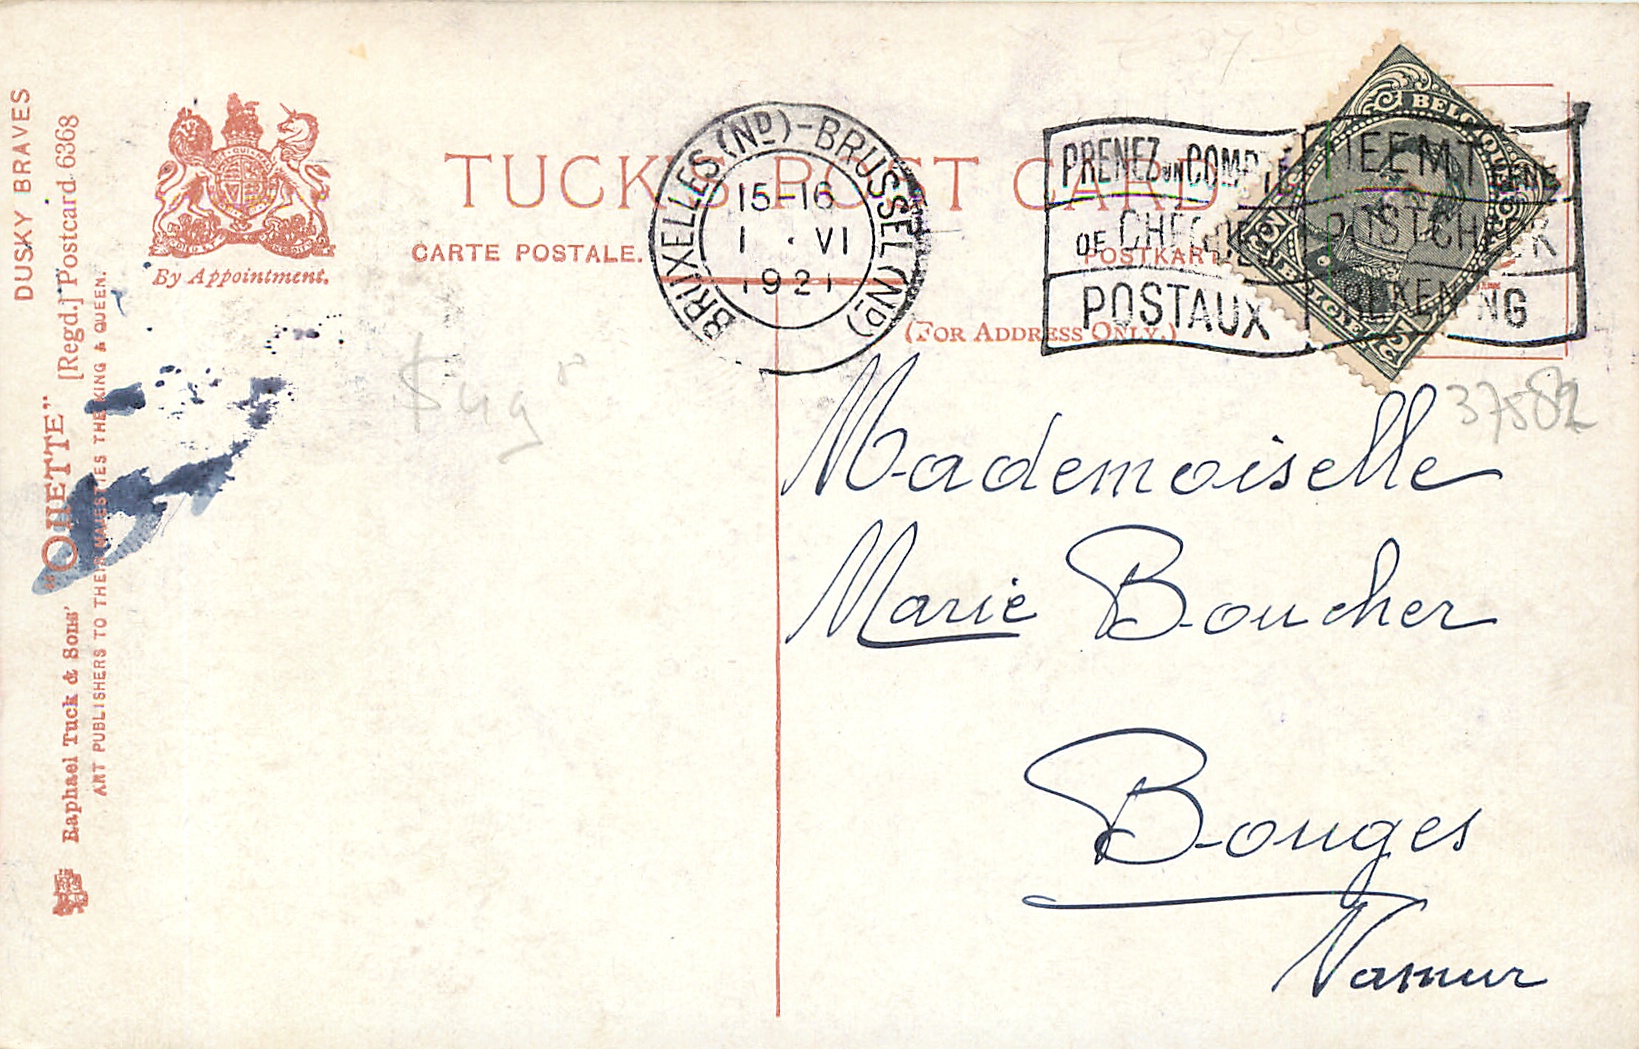 DUSKY BRAVES
Raphael Tuck & Sons' "OILETTE" [Regd.] Postcard 6368
ART PUBLISHERS TO THEIR MAJESTIES THE KING & QUEEN.
By Appointment.
TUCK'S POST CARD
CARTE POSTALE.
POSTKARTE
(FOR ADDRESS ONLY.)
BRUXELLES (ND)-BRUSSEL (ND)
15-16
1 · VI
1921
PRENEZ UN COMPTE
DE CHEQUES
POSTAUX
NEEMT EEN
POSTCHECK
REKENING
BELGIQUE
37582
Mademoiselle
Marie Boucher
Bouges
Namur